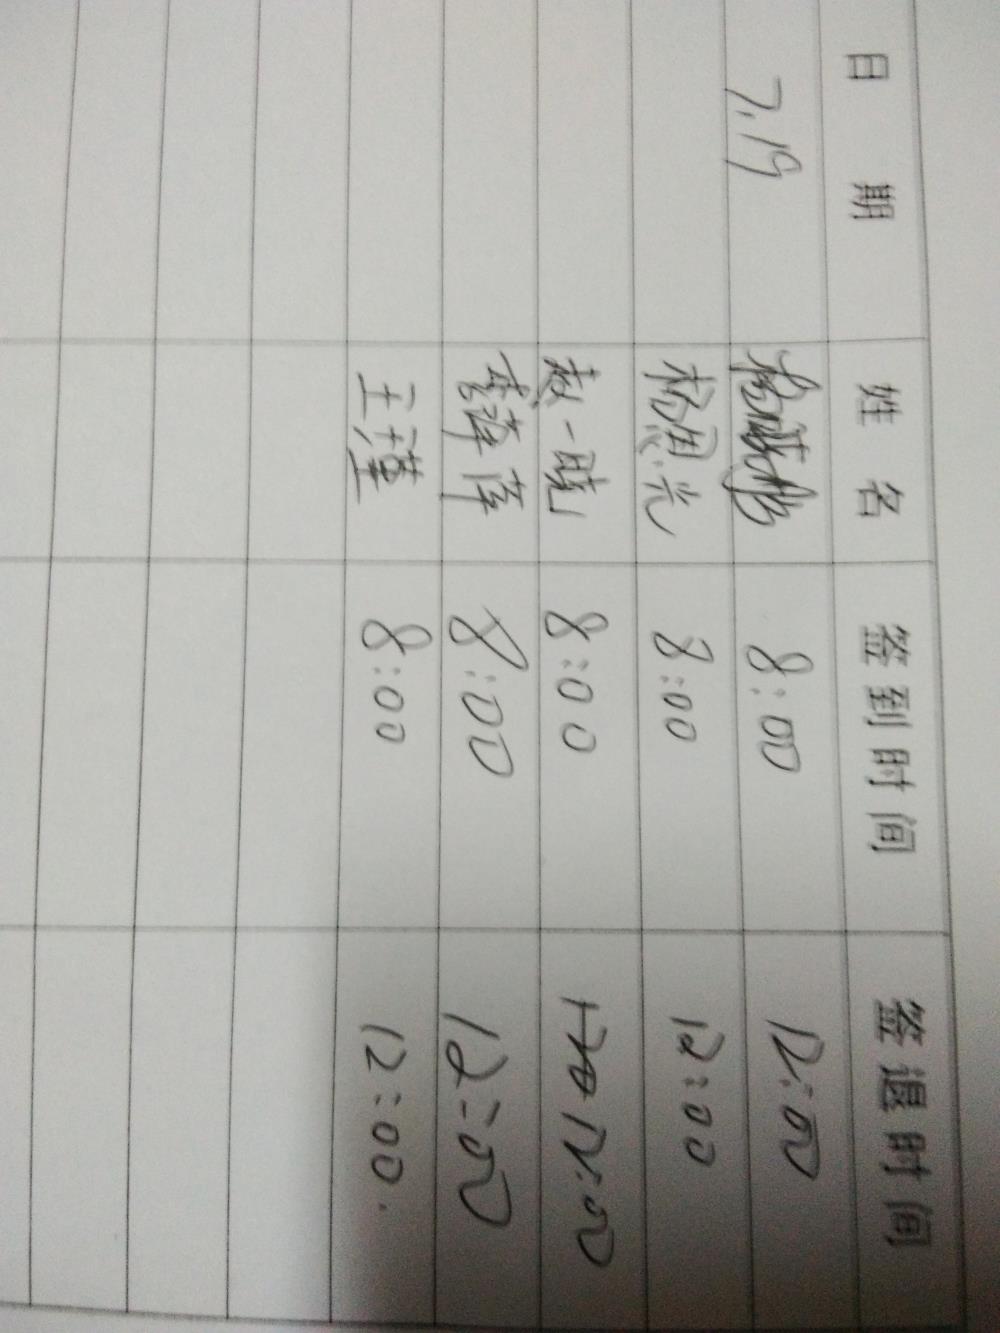 日期 姓名 签到时间 签退时间
7.19 8:00 12:00
杨思光 8:00 12:00
赵一晓 8:00 12:00
8:00 12:00
王瑾 8:00 12:00.